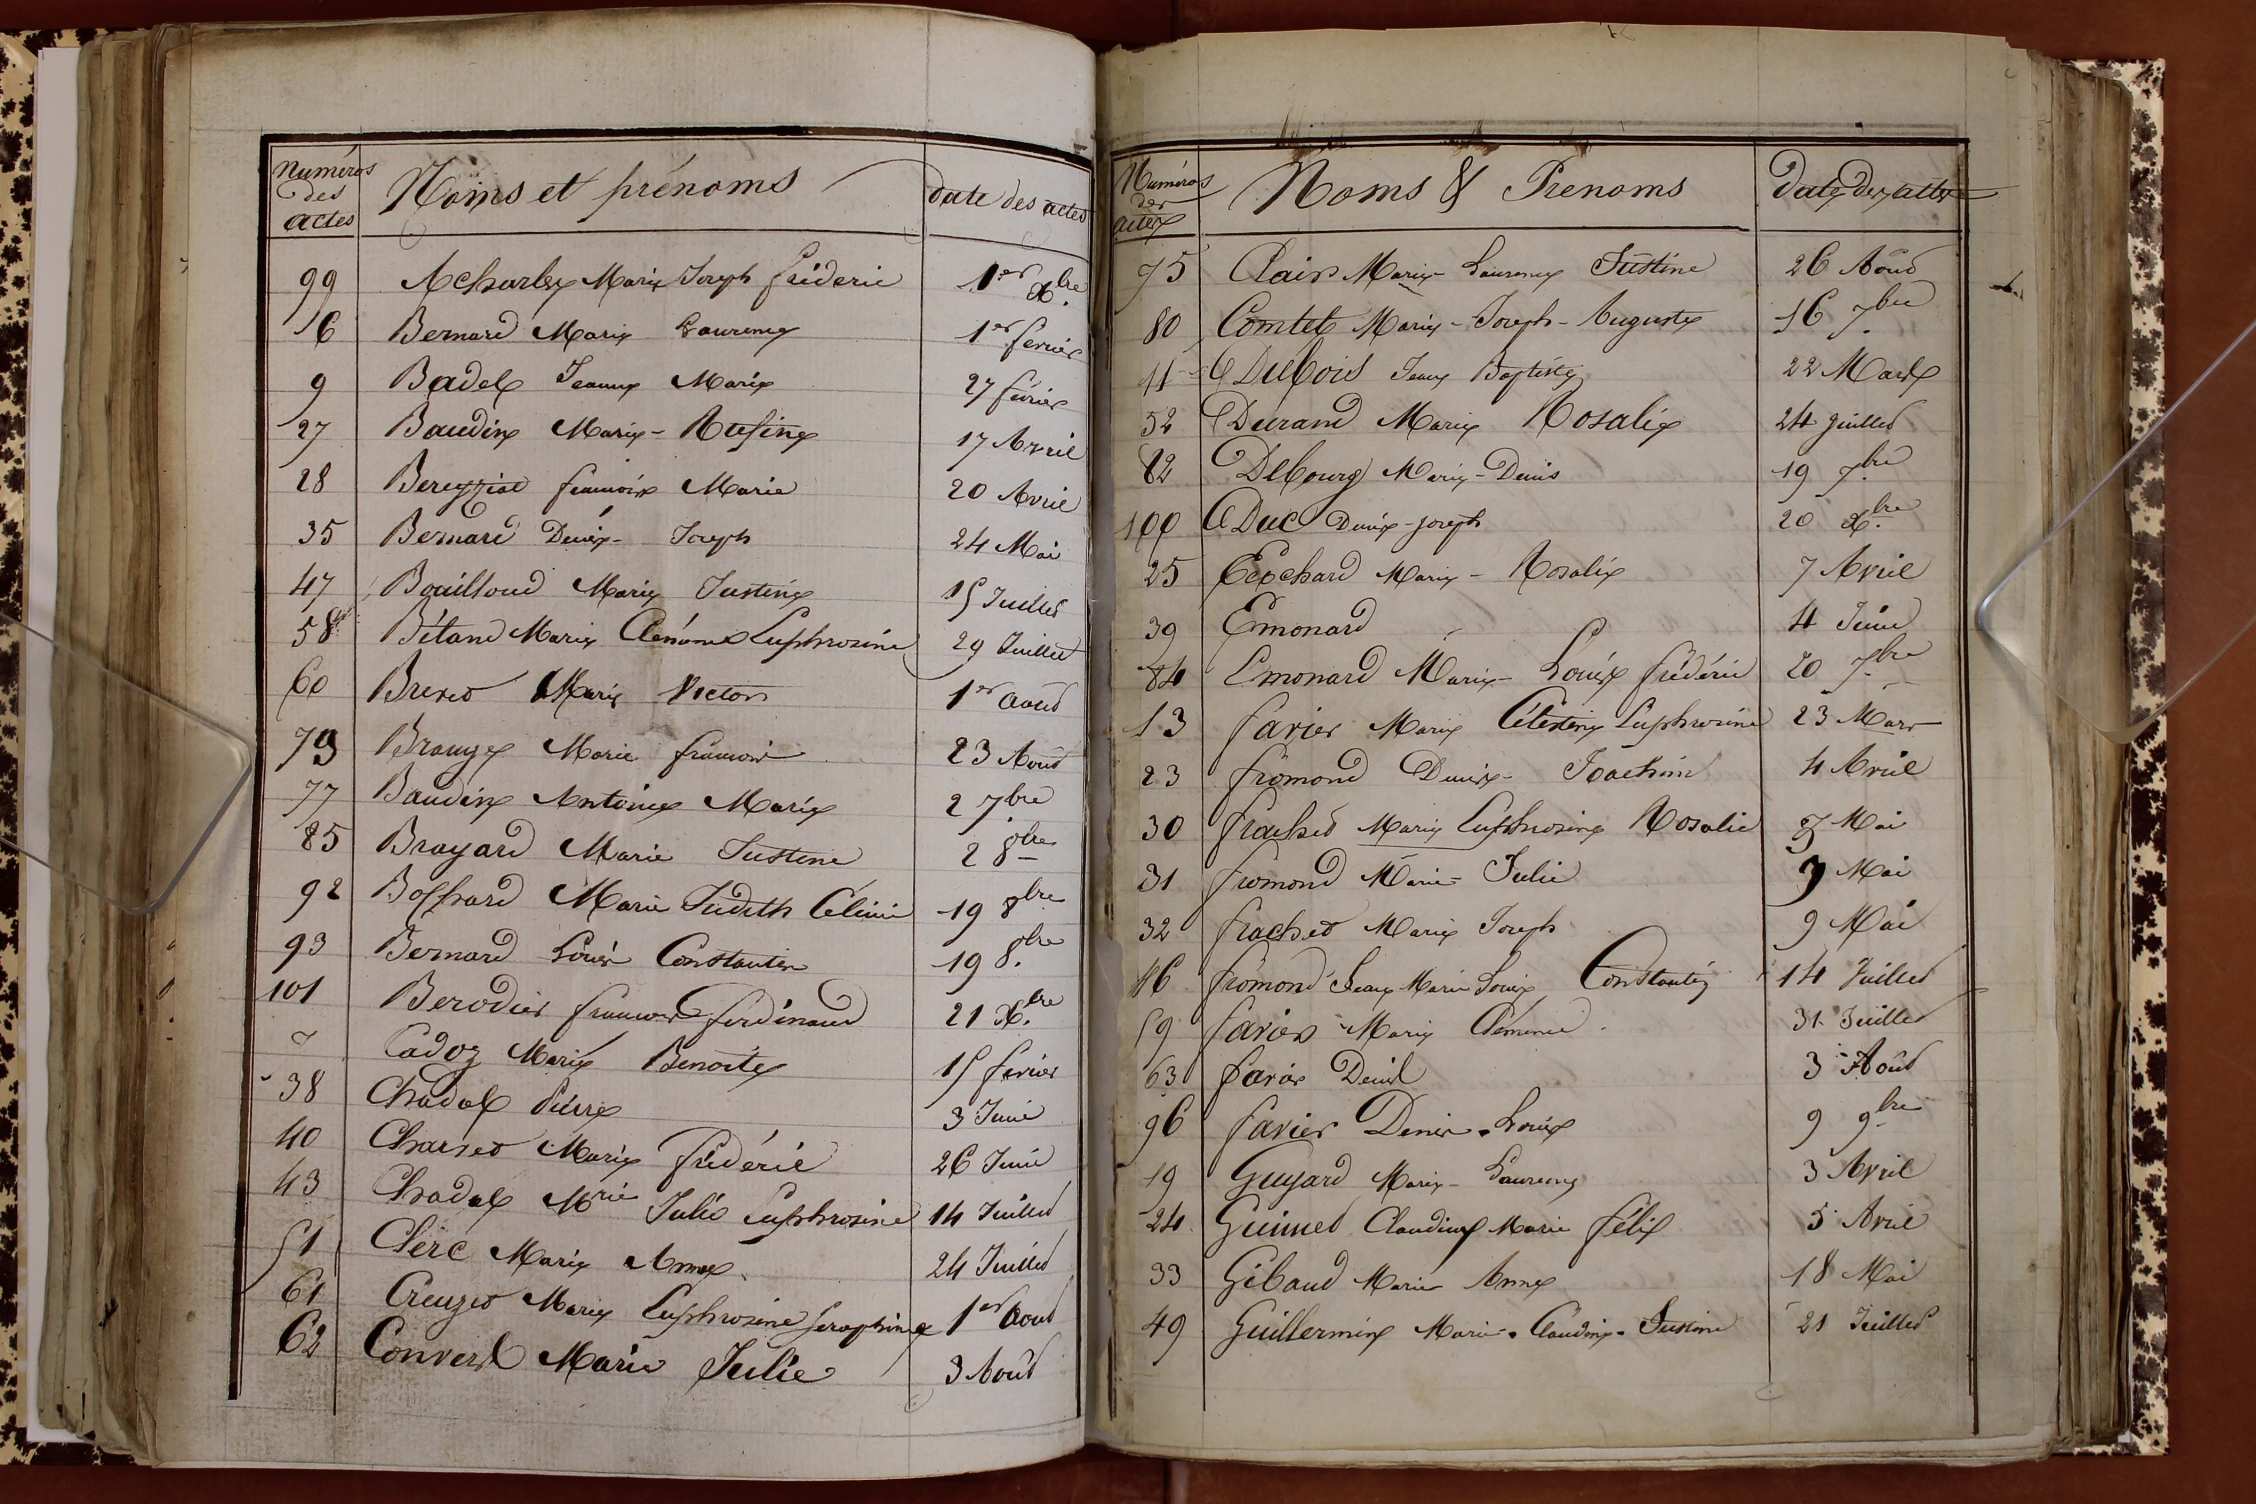 Numéros
des
actes
Noms et prénoms
date des actes
99 Acharles Marie Joseph fréderic 1er Xbre
16 Bernard Marie Laurence 1er fevrier
9 Badel Jeanne Marie 27 février
27 Baudin Marie-Rufine 17 Avril
28 Bereyziat francoise Marie 20 Avril
35 Bernard Denis-Joseph 24 Mai
47 Bouilloud Marie Justine 15 Juillet
58 Bétand Marie Clémence Euphrosine 29 Juillet
60 Brevet Marie Victor 1er août
73 Brouze Marie francois 23 Août
77 Baudin Antoine Marie 2 7bre
85 Brayard Marie Justine 2 8bre
92 Bossard Marie Judith Céline 19 8bre
93 Bernard Louis Constantin 19 8bre
101 Berodier francois ferdinand 21 Xbre
7 Cadoz Marie Benoite 15 fevrier
38 Chadal Pierre 3 Juin
40 Charvet Marie fréderic 26 Juin
43 Chadal Mrie Julie Euphrosine 14 Juillet
51 Clerc Marie Anne 24 Juillet
61 Creuzet Marie Euphrosine Seraphine 1er Aout
62 Convert Marie Julie 3 Août
Numéros
des
actes
Noms & Prenoms
Date des actes
75 Clair Marie-Laurence Justine 26 Août
80 Comtet Marie-Joseph-Auguste 16 7bre
11 Dubois Jean Baptiste 22 Mars
52 Durand Marie Rosalie 24 Juillet
82 Debourg Marie-Denis 19 7bre
100 Duc Denis-Joseph 20 Xbre
25 Marie-Rosalie 7 Avril
39 Emonard 4 Juin
84 Emonard Marie-Louis frédéric 20 7bre
13 favier Marie Célestine Euphrosine 23 Mars
23 fromond Denis-Joachim 4 Avril
30 frachet Marie Euphrosine Rosalie Mai
31 fromond Marie-Julie 9 Mai
32 frachet Marie Joseph 9 Mai
46 fromond Jean Marie Louis Constantin 14 Juillet
59 favier Marie Clémence 31 Juillet
63 favier Denis 3 Août
96 favier Denis-Louis 9 9bre
19 Guyard Marie-Laurence 3 Avril
24 Guimet Claudine Marie félix 5 Avril
33 Gibaud Marie Anne 18 Mai
49 Guillermin Marie-Claudine-Justine 21 Juillet